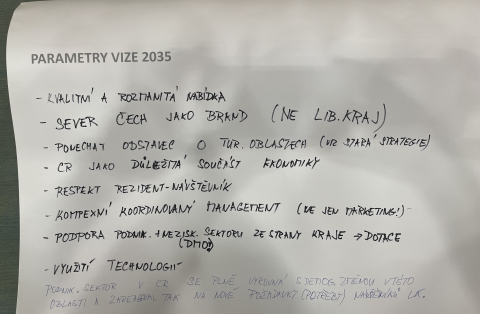 PARAMETRY VIZE 2035
- KVALITNÍ A ROZMANITÁ NABÍDKA
- SEVER ČECH JAKO BRAND (NE LIB. KRAJ)
- PONECHAT ODSTAVEC O TUR. OBLASTECH (VIZ STARÁ STRATEGIE)
- CR JAKO DŮLEŽITÁ SOUČÁST EKONOMIKY
- RESPEKT REZIDENT-NÁVŠTĚVNÍK
- KOMPEXNÍ KOORDINOVANÝ MANAGEMENT (NE JEN MARKETING!)
- PODPORA PODNIK. + NEZISK. SEKTORU ZE STRANY KRAJE → DOTACE
(DMO)
- VYUŽITÍ TECHNOLOGIÍ
PODNIK. SEKTOR V CR SE PLNĚ VYROVNÁ S DEMOG. ZMĚNOU V TÉTO
OBLASTI A ZAREAGUJE TAK NA NOVÉ POŽADAVKY (POTŘEBY) NÁVŠTĚVNÍKŮ LK.